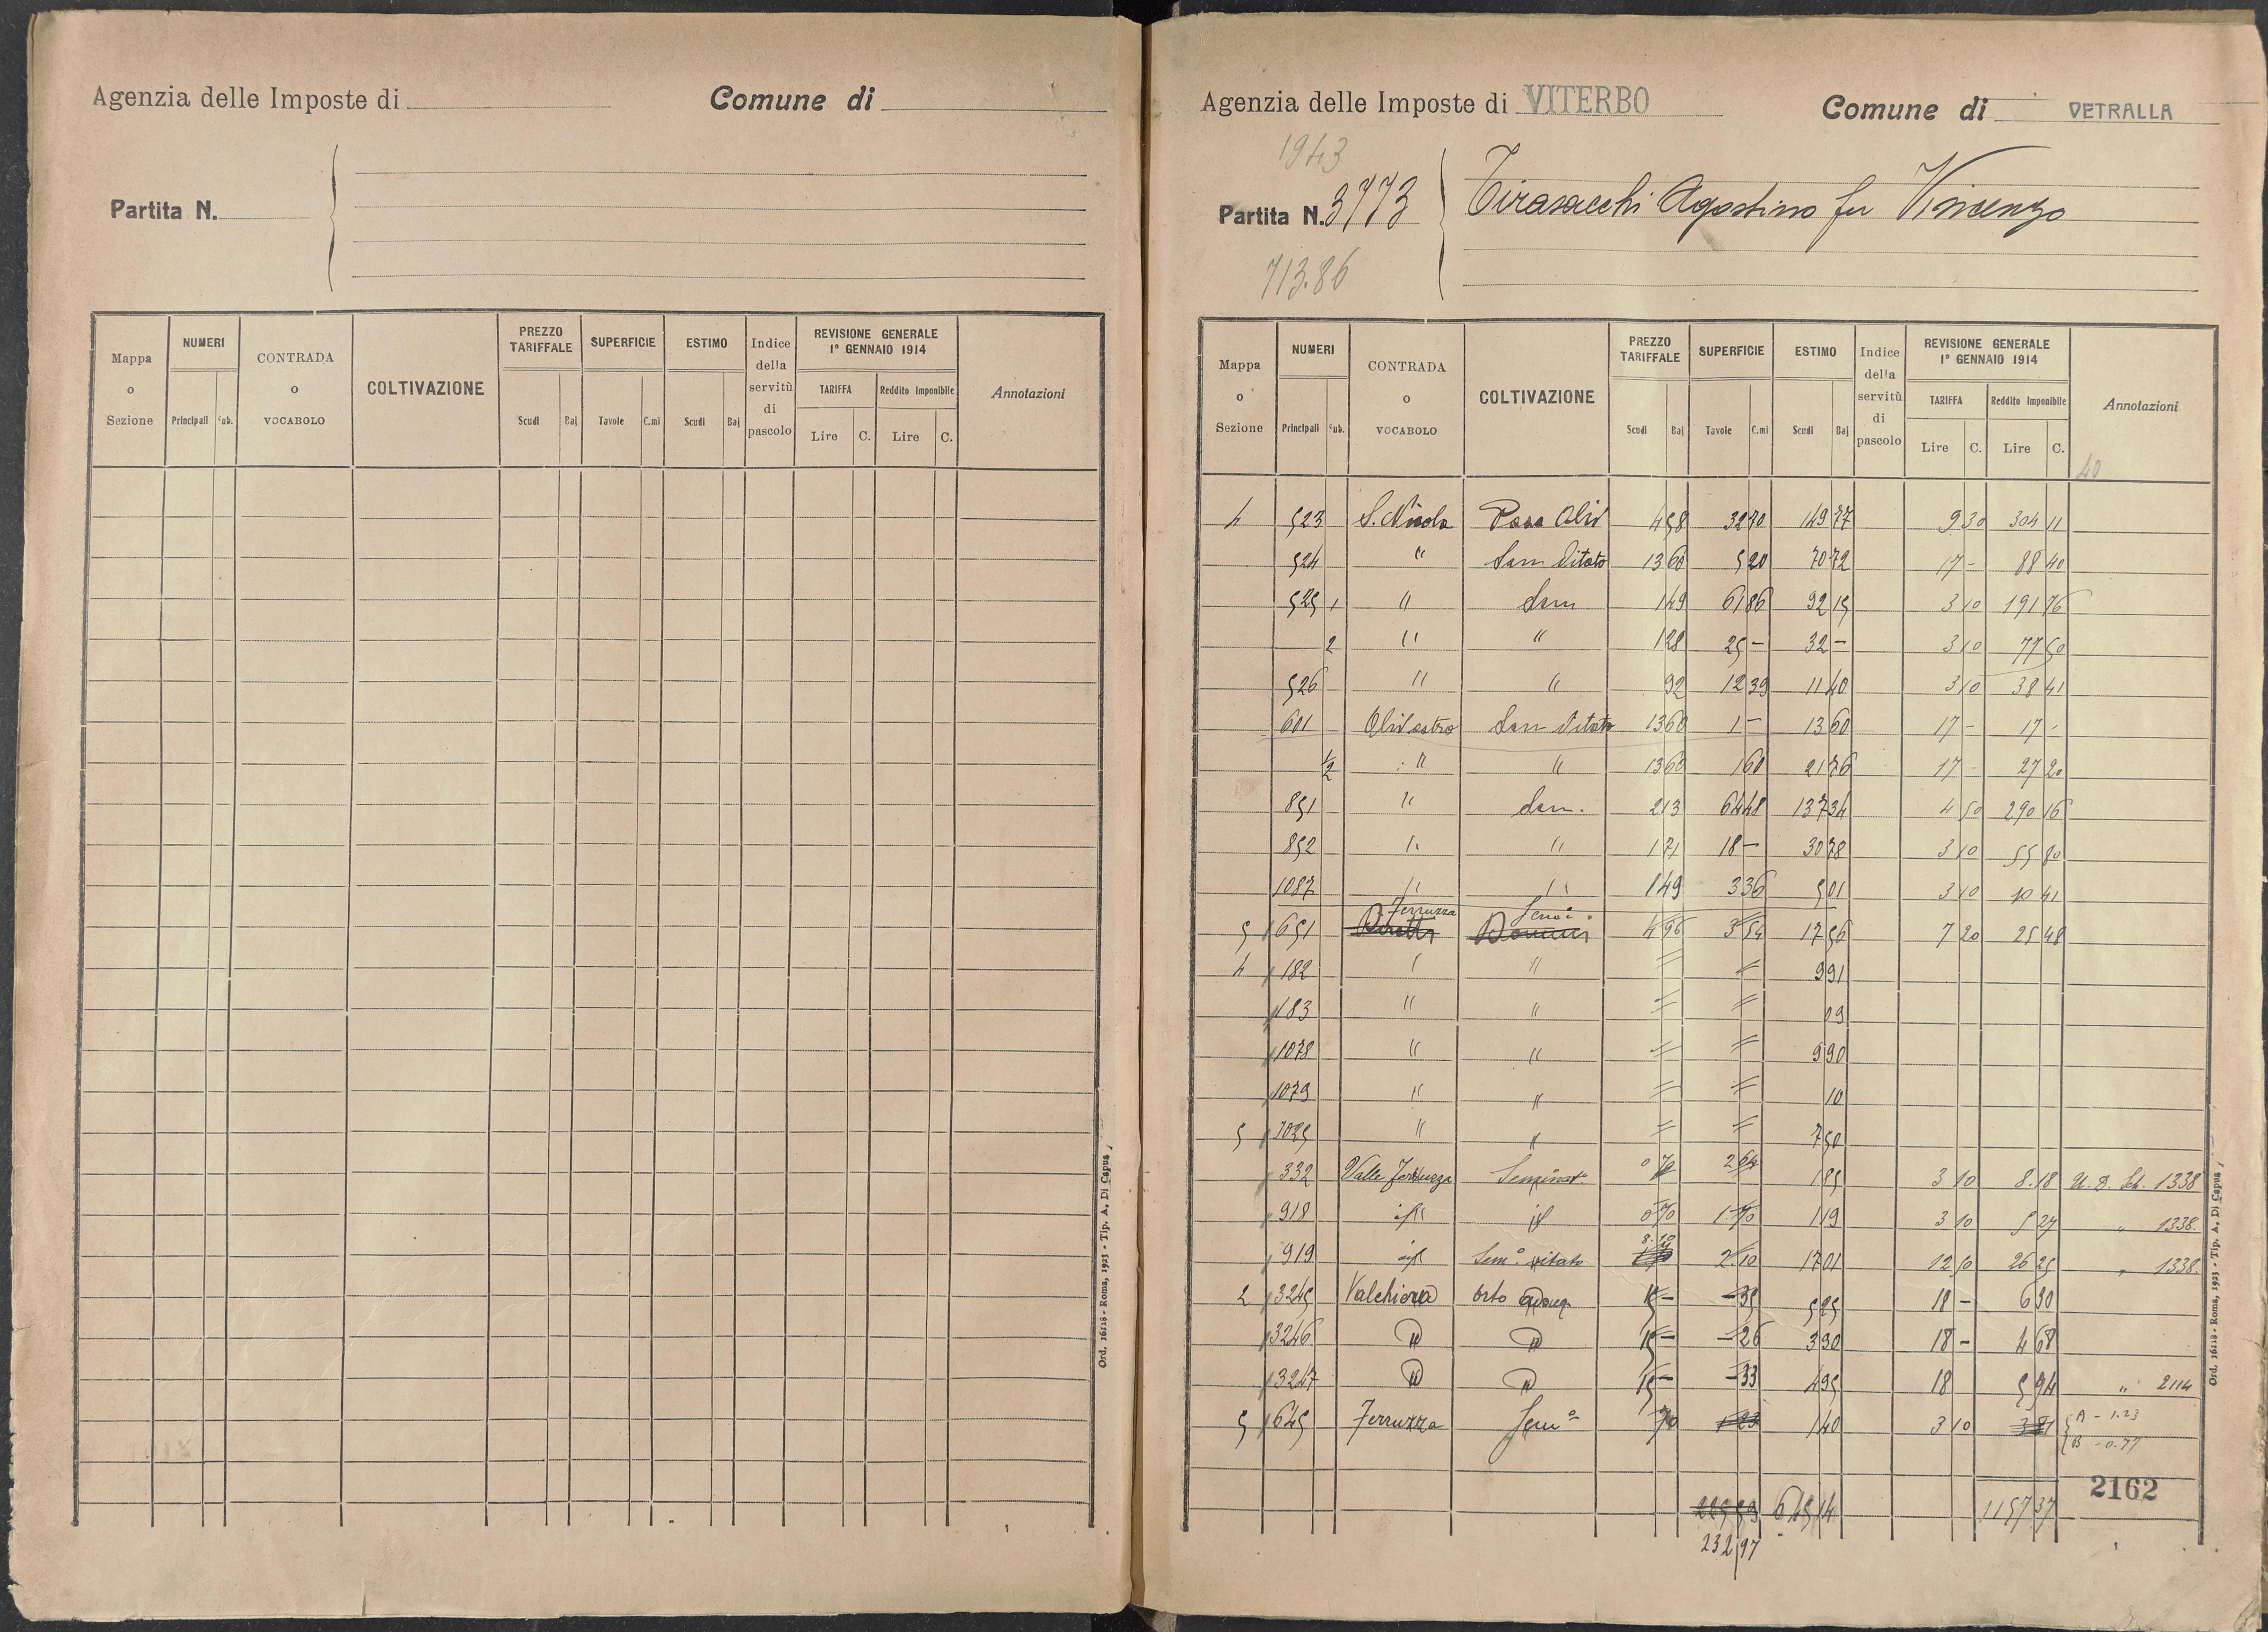 Agenzia delle Imposte di Comune di
Partita N.
Mappa o Sezione NUMERI CONTRADA o VOCABOLO COLTIVAZIONE PREZZO TARIFFALE SUPERFICIE ESTIMO Indice della servitù di pascolo REVISIONE GENERALE 1° GENNAIO 1914 Annotazioni
TARIFFA Reddito Imponibile
Principali Sub. Scudi Baj Tavole C.mi Scudi Baj Lire C. Lire C.
Ord. 16118 - Roma, 1923 - Tip. A. Di Capua
Agenzia delle Imposte di VITERBO Comune di VETRALLA
1943
Partita N. 3773 Tirasacchi Agostino fu Vincenzo
713.86
Mappa o Sezione NUMERI CONTRADA o VOCABOLO COLTIVAZIONE PREZZO TARIFFALE SUPERFICIE ESTIMO Indice della servitù di pascolo REVISIONE GENERALE 1° GENNAIO 1914 Annotazioni
TARIFFA Reddito Imponibile
Principali Sub. Scudi Baj Tavole C.mi Scudi Baj Lire C. Lire C.
40
4 523 S. Nicola Oliv 4 58 32 70 149 77 9 30 304 11
524 " Sem Vitato 13 60 5 20 70 72 17 - 88 40
525 1 " Sem 1 49 61 86 92 15 3 10 191 76
2 " " 1 28 25 - 32 - 3 10 77 50
526 " " 92 12 39 11 40 3 10 38 41
601 Olivastro Sem Vitato 13 60 1 - 13 60 17 - 17 -
1/2 " " 13 60 1 60 21 76 17 - 27 20
851 " Sem. 2 13 64 48 137 34 4 50 290 16
852 " " 1 71 18 - 30 78 3 10 55 80
1087 " " 1 49 3 36 5 01 3 10 10 41
5 651 Ferruzza Sem° 4 96 3 54 17 56 7 20 25 48
4 182 " " = = 9 91
183 " " = = 09
1078 " " = = 9 90
1079 " " = = 10
5 1025 " " = = 7 50
332 Valle Ferruzza Seminat° 0 70 2 64 1 85 3 10 8.18 U. D. Sch. 1338
918 id 0 70 1.70 1 19 3 10 5 27 " 1338.
919 id Sem° vitato 8.10 2.10 17 01 12 50 26 25 " 1338.
2 3245 Valchiera Orto adacq 15 - - 35 5 25 18 - 6 30
3246 " " 15 - - 26 3 90 18 - 4 68
3247 " " 15 - - 33 4 95 18 5 94 " 2114
5 645 Ferruzza Sem° 70 1 23 1 40 3 10 3 81 A - 1.23
B - 0.77
2162
645 14 1157 37
232 97
Ord. 16118 - Roma, 1923 - Tip. A. Di Capua